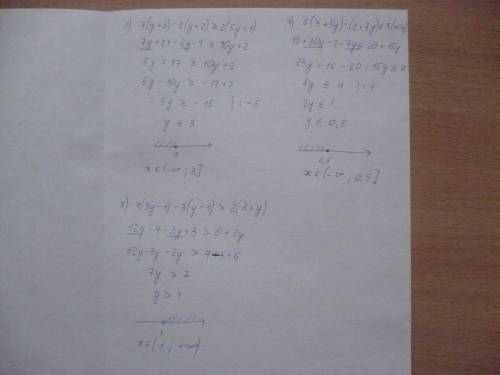 3) 7(y+3)-2(y+2) ≥ 2(5y+1)
7y+21-2y-4 ≥ 10y+2
5y+17 ≥ 10y+2
5y-10y ≥ -17+2
-5y ≥ -15 |:-5
y ≤ 3
3
x∈(-∞; 3]
4) 6(3+5y)-(2+7y)≤ 5(4+3y)
18+30y-2-7y≤20+15y
23y+16-20-15y≤0
8y ≤ 4 |:4
2y ≤ 1
y ≤ 0,5
0,5
x∈(-∞; 0,5]
5) 4(3y-1)-3(y-1) > 2(3+y)
12y-4-3y+3 > 6+2y
12y-3y-2y > 4-3+6
7y > 7
y > 1
1
x∈(1; +∞)